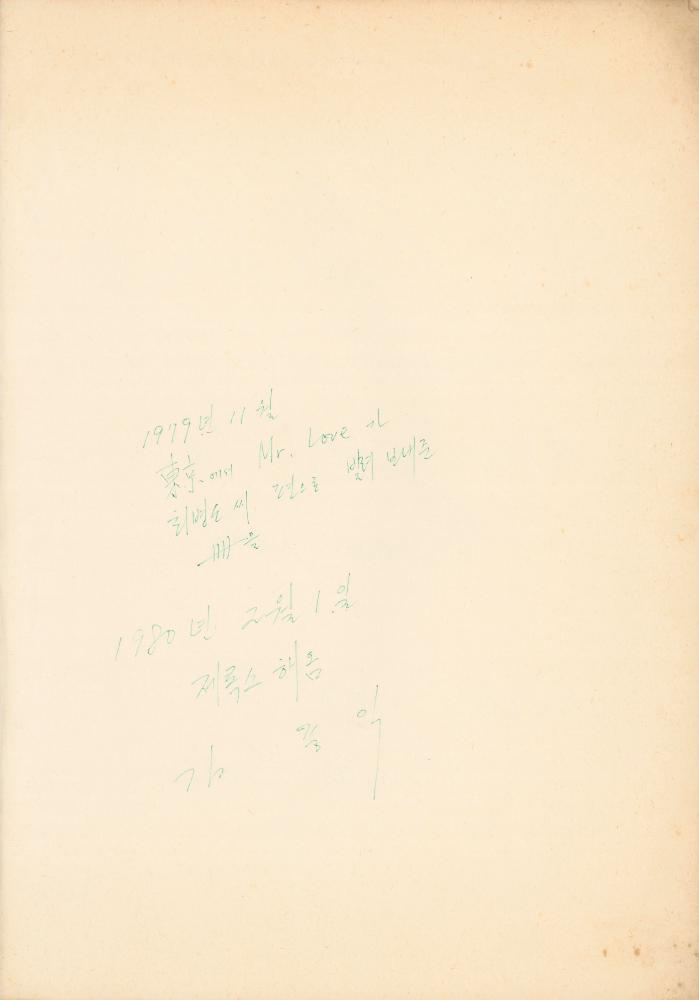 1979년 11월
東京에서 Mr. Love 가
최병오 씨 편으로 빌려 보내준
冊을
1980년 2월 1일
제록스 해옴
김 용 익